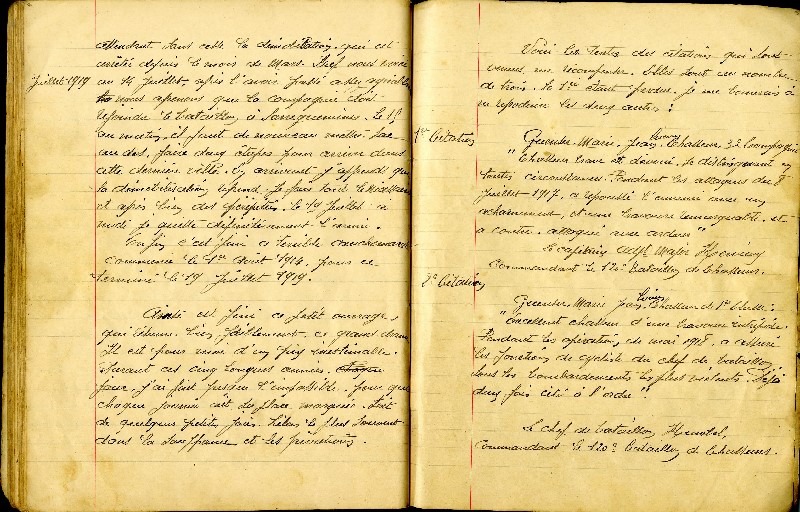 attendant sans cesse la démobilisation, qui est
arrêtée depuis le mois de Mars. Bref nous voici
Juillet 1919 au 14 Juillet, après l'avoir passé assez
nous apprenons que la compagnie doit
rejoindre le bataillon, à Sarreguemines. Le 15
au matin, il faut de nouveau mettre sac
au dos, faire deux étapes pour arriver dans
cette dernière ville. En arrivant j'apprends que
la démobilisation reprend. Je fais voir
et après bien des péripéties, le 19 Juillet à
midi je quitte définitivement l'armée.
Enfin c'est fini ce terrible cauchemar
commencé le 1er Août 1914, pour se
terminer le 19 Juillet 1919.
Ainsi est fini ce petit ouvrage,
qui bien faiblement, ce grand drame
Il est pour moi d'un prix inestimable.
Durant ces cinq longues années,
j'ai fait presque l'impossible, pour que
chaque journée ait sa place marquée. Soit
de quelques petites joies, hélas le plus souvent
dans la souffrance et les privations.
Voici les textes des citations qui sont
venues me récompenser. Elles sont au nombre
de trois. La 1ère étant perdue, je me bornerai à
reproduire les deux autres :
1ère Citation Marie, Jean, Chasseur 3e Compagnie
"Chasseur brave et dévoué, se distinguant en
toutes circonstances. Pendant les attaques du 8
Juillet 1917, a repoussé l'ennemi avec un
acharnement, et une bravoure remarquable, et
a contre-attaqué avec ardeur"
Le capitaine Adjt Major
Commandant le 120e Bataillon de Chasseurs.
2e Citation Marie Jean, Chasseur de 1re classe.
"Excellent chasseur d'une bravoure intrépide.
Pendant les opérations, de mai 1918, a assuré
les fonctions de cycliste du chef de bataillon,
sous les bombardements les plus violents. Déjà
deux fois cité à l'ordre".
Le chef de bataillon,
commandant le 120e bataillon de Chasseurs.